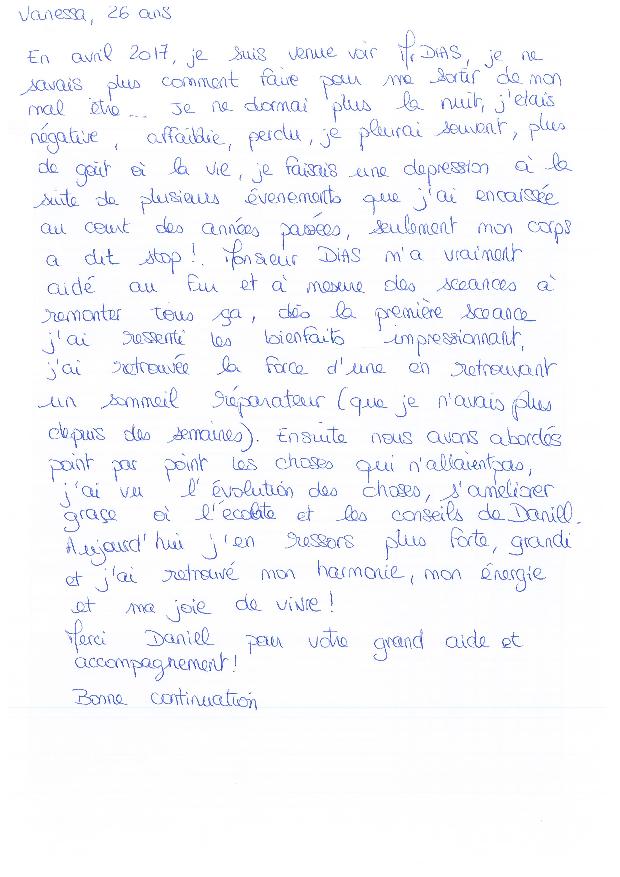 Vanessa, 26 ans
En avril 2017, je suis venue voir Mr DIAS, je ne
savais plus comment faire pour me sortir de mon
mal être... Je ne dormai plus la nuit, j'etais
négative, affaiblie, perdu, je pleurai souvent, plus
de goût à la vie, je faisais une depression à la
suite de plusieurs évenements que j'ai encaissée
au court des années passées, seulement mon corps
a dit stop! Monsieur DIAS m'a vraiment
aidé au fur et à mesure des sceances à
remonter tous ça, dès la première sceance
j'ai ressenti les bienfaits impressionnant,
j'ai retrouvée la force d'une en retrouvant
un sommeil réparateur (que je n'avais plus
depuis des semaines). Ensuite nous avons abordés
point par point les choses qui n'allaient pas,
j'ai vu l'évolution des choses, s'améliorer
graçe à l'écoute et les conseils de Daniel.
Aujourd'hui j'en ressors plus forte, grandi
et j'ai retrouvé mon harmonie, mon énergie
et ma joie de vivre!
Merci Daniel pour votre grand aide et
accompagnement!
Bonne continuation